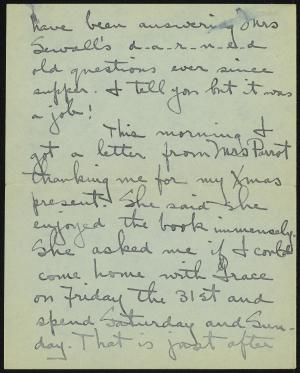 have been answering Mrs
Sewall's d-a-r-n-e-d
old questions ever since
supper. I tell you but it was
a job!
This morning I
got a letter from Mrs Parrot
thanking me for my Xmas
present. She said she
enjoyed the book immensely.
She asked me if I could
come home with Grace
on Friday the 31st and
spend Saturday and Sun-
day. That is just after